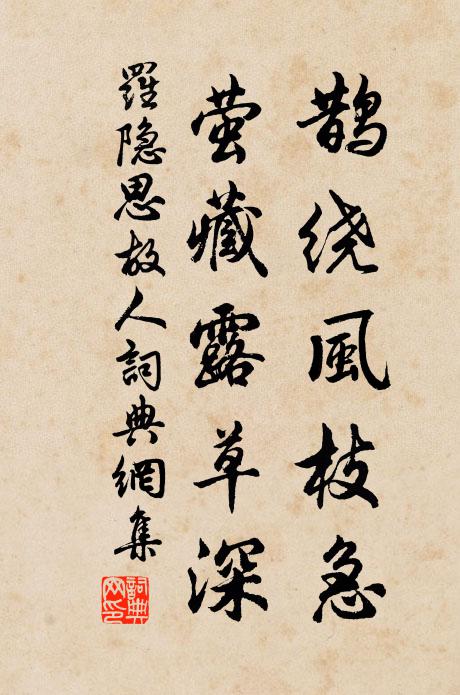 鹊绕風枝急
萤藏露草深
羅隐思故人詞典網集
詞典网印